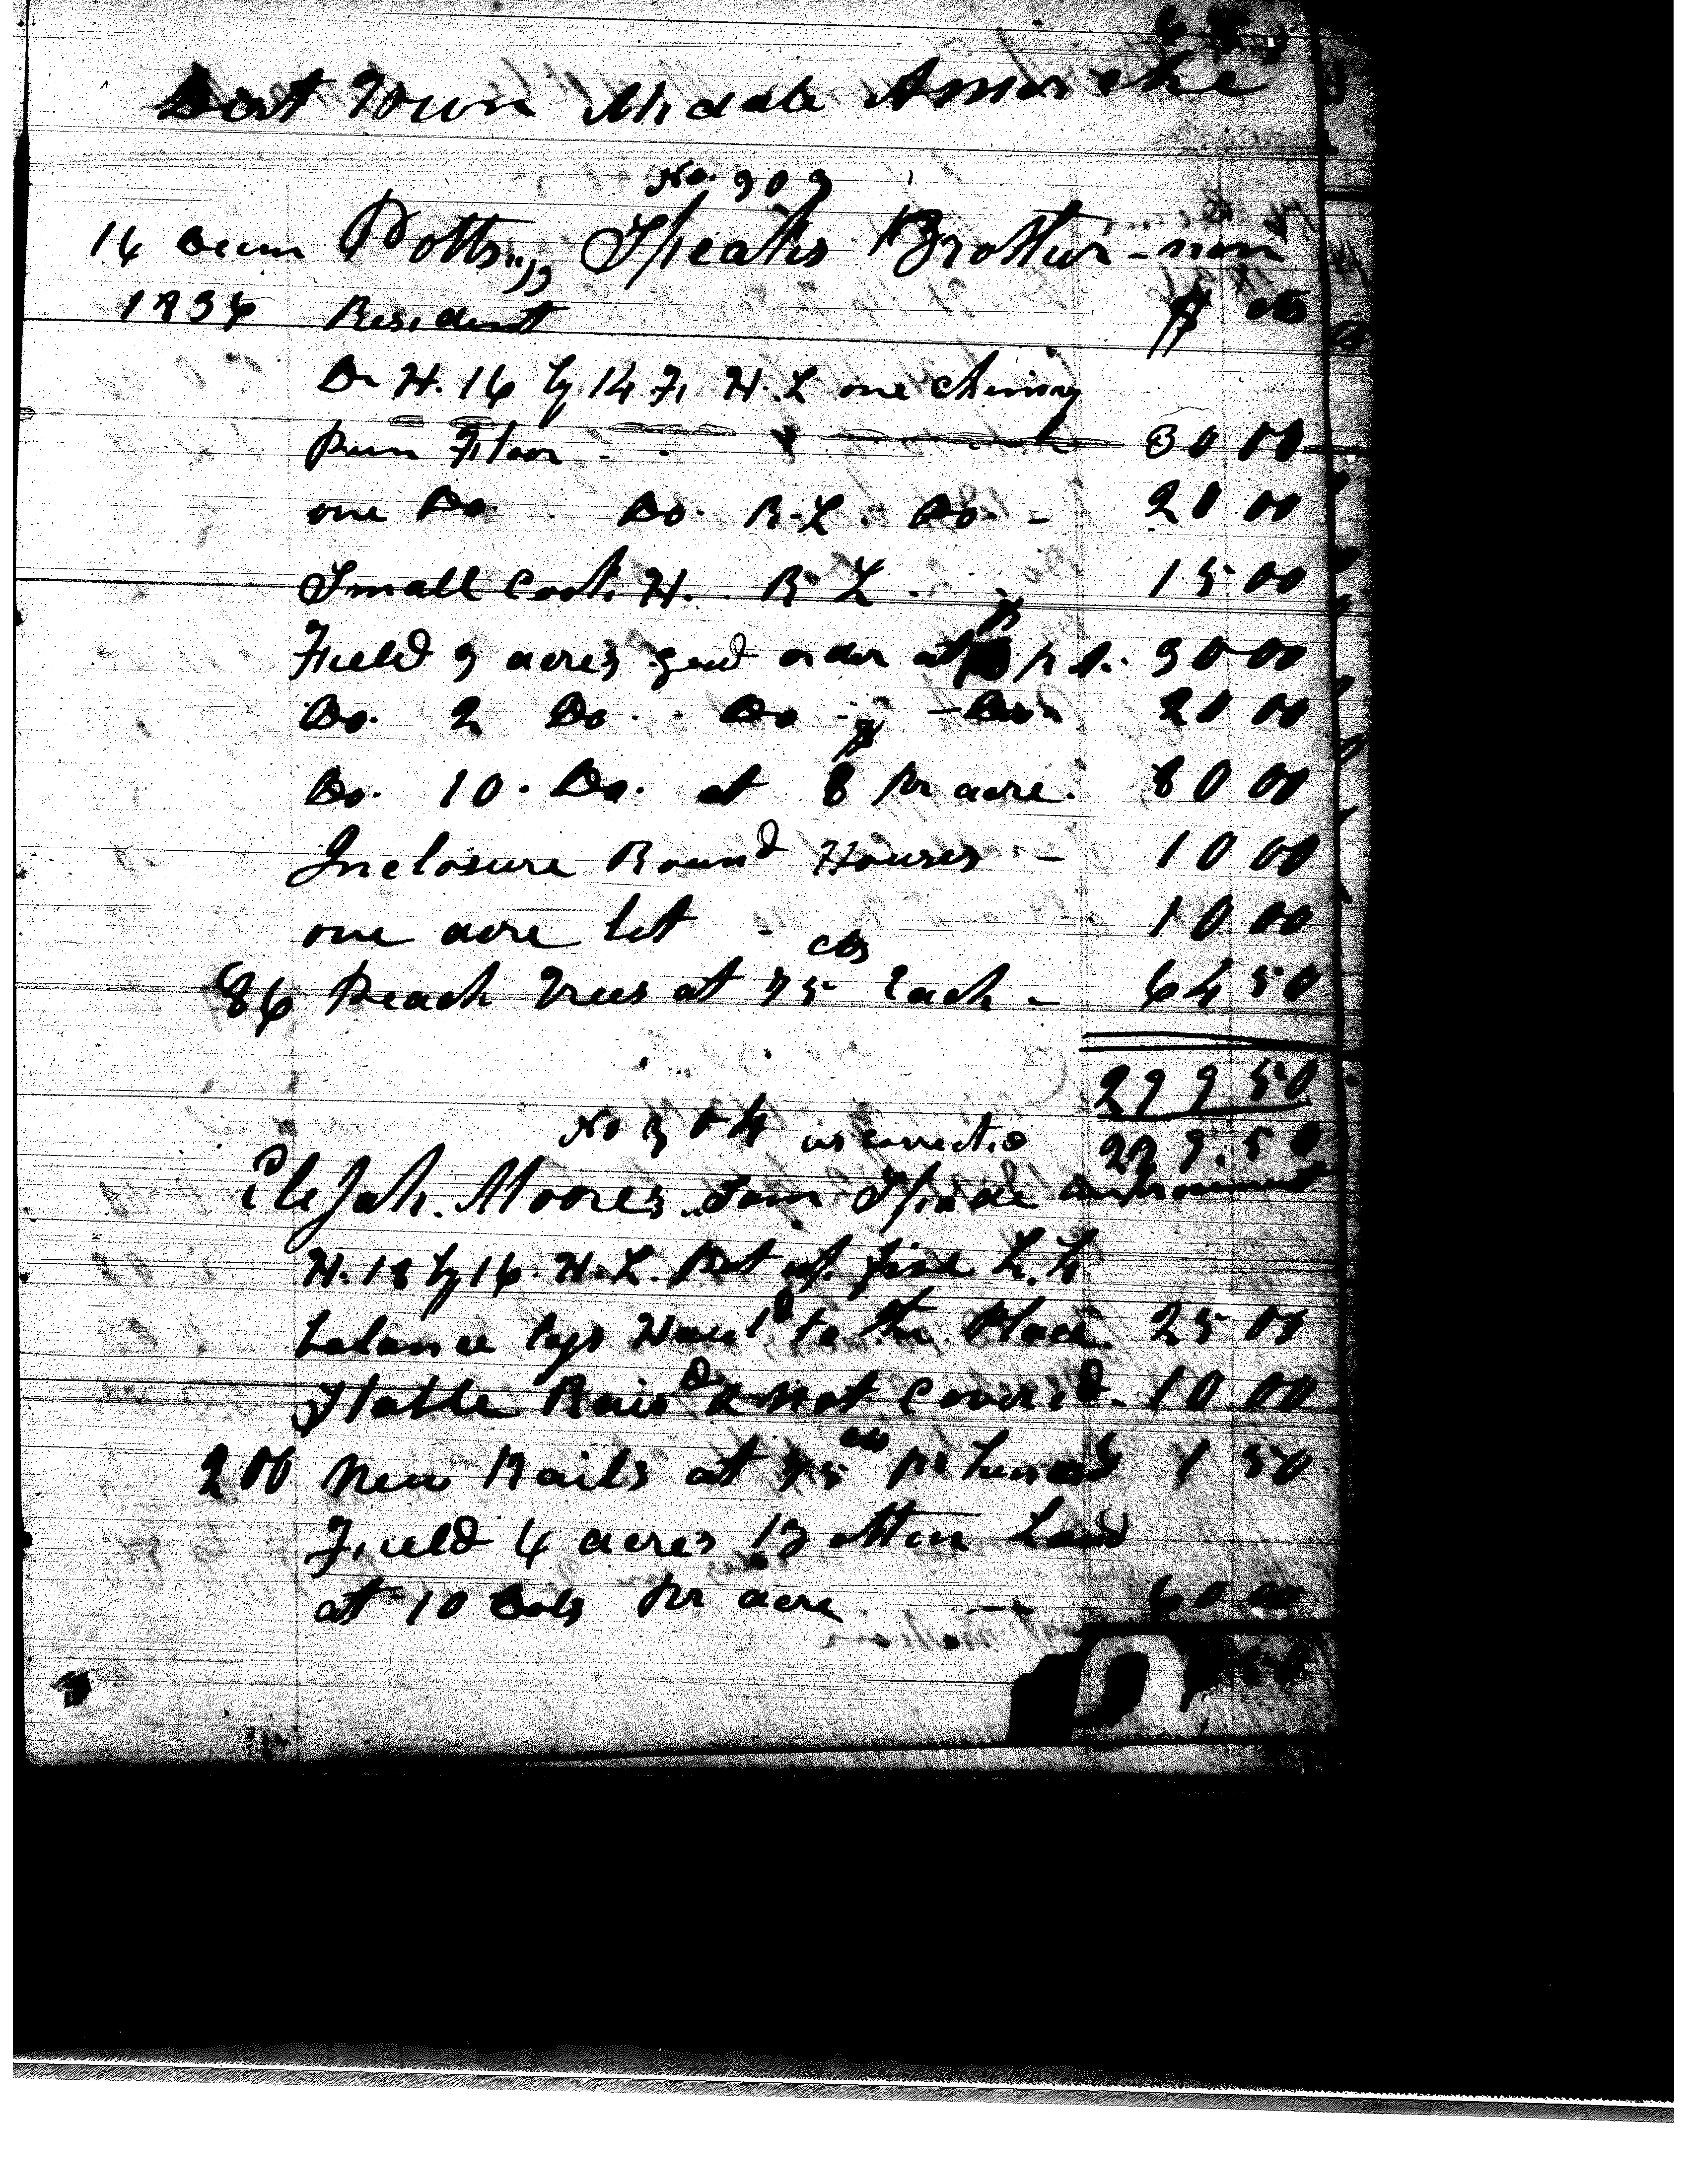 Dirt Town
No. 303
14 Decm Potts,,,, Speaks Brother - non
1836 Resident $ cts
D H. 16 by 14 F. H. L one chimny
Pun Floor - - 30 00
one Do. Do. R. L. Do. - 20 00
Small Cook. H. R L 15 00
Field 3 acres good order at $ 30 00
Do. 2 Do. Do - Do 20 00
Do. 10. Do. at $ 8 pr acre. 80 00
Inclosure Round Houses - 10 00
one acre lot - 10 00
86 Peach Trees at 75 cts Each - 64 50
279 50
No 304 as corrected 279.50
Elijah. Moores improvement
H. 18 by 16. H. L. Put up.
balance logs Hauld to the Place. 25 00
Stable Raisd & not Coverd. 10 00
200 New Rails at 75 cts pr hundd 1 50
Field 4 acres Bottom Land
at 10 Dols pr acre -- 00